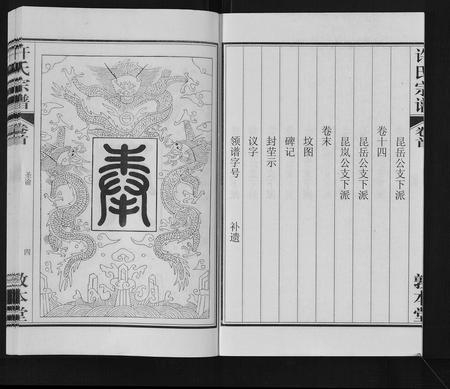 许氏宗谱
卷首
昆岳公支下派
卷十四
昆岳公支下派
昆岚公支下派
卷末
坟图
碑记
封茔示
议字
领谱字号
补遗
敦本堂
许氏宗谱
卷首
圣谕
四
敦本堂
奉